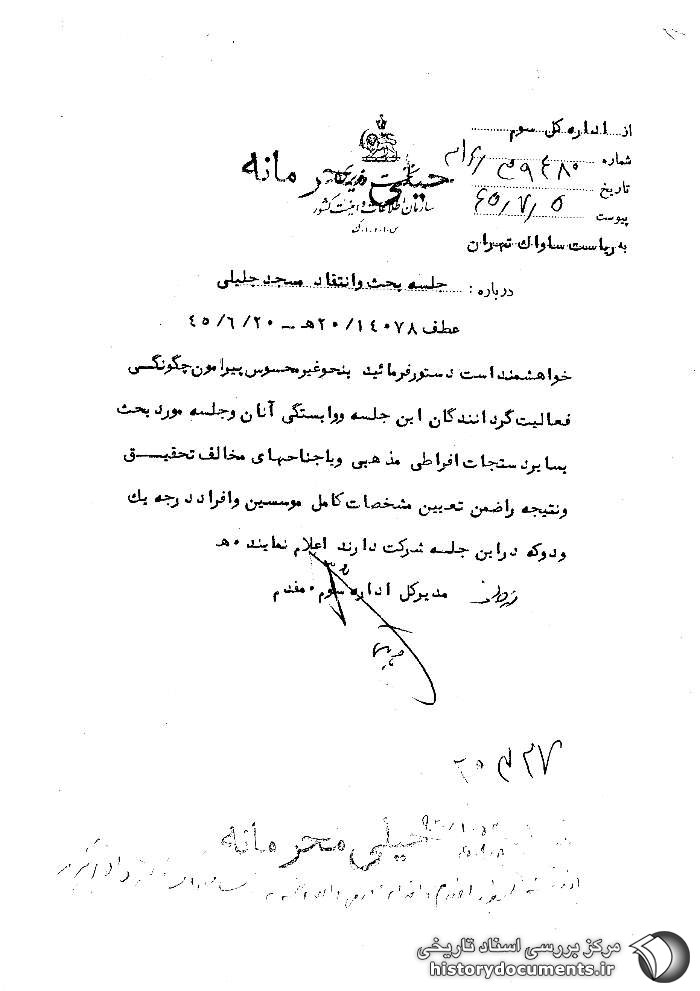 از اداره کل سوم
شماره ۳۱۶/۳۹۴۸۰
تاریخ ۴۵/۷/۵
پیوست
خیلی محرمانه
سازمان اطلاعات و امنیت کشور
به ریاست ساواک تهران
درباره: جلسه بحث و انتقاد مسجد جلیلی
عطف ۲۰/۱۴۰۷۸هـ – ۴۵/۶/۲۰
خواهشمند است دستور فرمائید بنحو غیر محسوس پیرامون چگونگی
فعالیت گردانندگان این جلسه ووابستگی آنان وجلسه مورد بحث
بسایر دستجات افراطی مذهبی ویا جناحهای مخالف تحقیق
ونتیجه راضمن تعیین مشخصات کامل موسسین وافراد درجه یک
ودوکه دراین جلسه شرکت دارند اعلام نمایند ۰هـ
مدیرکل اداره سوم ۰ مقدم
خیلی محرمانه
مرکز بررسی اسناد تاریخی
historydocuments.ir